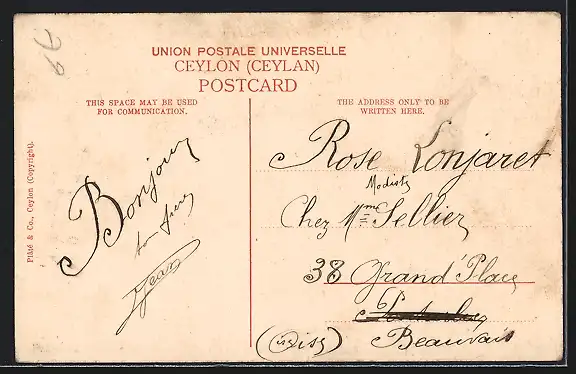 UNION POSTALE UNIVERSELLE
CEYLON (CEYLAN)
POSTCARD
THIS SPACE MAY BE USED
FOR COMMUNICATION.
THE ADDRESS ONLY TO BE
WRITTEN HERE.
Plâté & Co., Ceylon (Copyright).
Bonjour
ton frere
Jean
Rose Lonjaret
Modiste
Chez Mme Sellier
38 Grand' Place
Beauvais
(Oise)